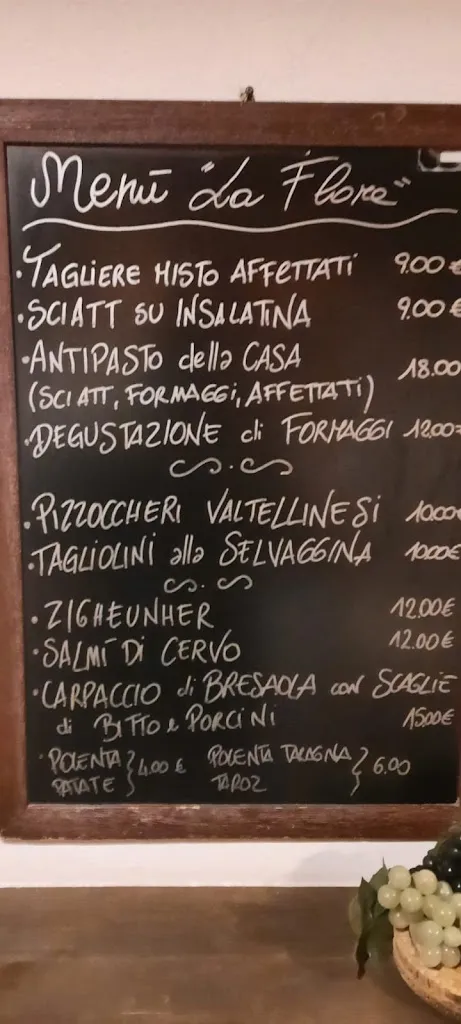 Menù "La Flora"
·TAGLIERE MISTO AFFETTATI 9.00 €
·SCIATT SU INSALATINA 9.00 €
·ANTIPASTO della CASA 18.00
(SCIATT, FORMAGGI, AFFETTATI)
·DEGUSTAZIONE di FORMAGGI 12.00€
·PIZZOCCHERI VALTELLINESI 10.00€
·TAGLIOLINI alla SELVAGGINA 10.00€
·ZIGHEUNHER 12.00€
·SALMÌ DI CERVO 12.00€
·CARPACCIO di BRESAOLA con SCAGLIE
di BITTO e PORCINI 15.00€
·POLENTA } 4.00 € POLENTA TARAGNA } 6.00
PATATE TAROZ